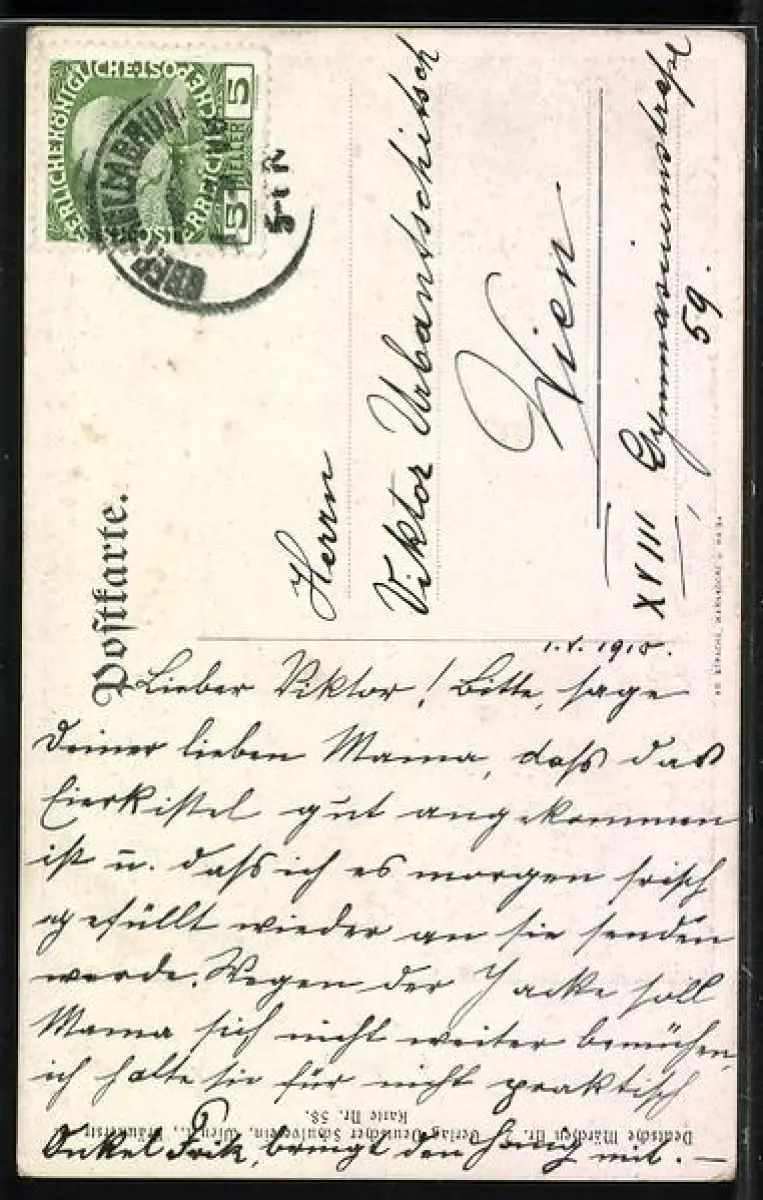 KAISERLICHE KÖNIGLICHE POST
ÖSTERREICH
5 HELLER 5
OBERHOLLABRUNN
Postkarte.
Herrn
Viktor Urbantschitsch
Wien
XVIII Gymnasiumstraße
59.
1. V. 1910.
Lieber Viktor! Bitte, sage
Deiner lieben Mama, dass das
Eierkistel gut angekommen
ist u. dass ich es morgen frisch
gefüllt wieder an sie senden
werde. Wegen der Jacke soll
Mama sich nicht weiter bemühen,
ich halte sie für nicht praktisch
Onkel Fritz bringt den Honig mit. —
Deutsche Märchen Nr. Verlag Deutscher Schulverein, Wien, Bräunerstr.
Karte Nr. 58.